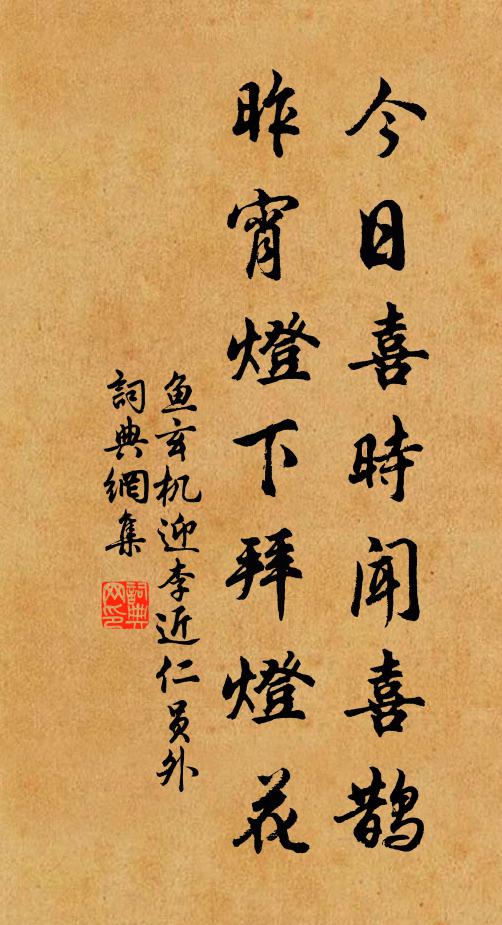 今日喜時闻喜鹊
昨宵燈下拜燈花
鱼玄机迎李近仁员外
詞典網集
詞典网印